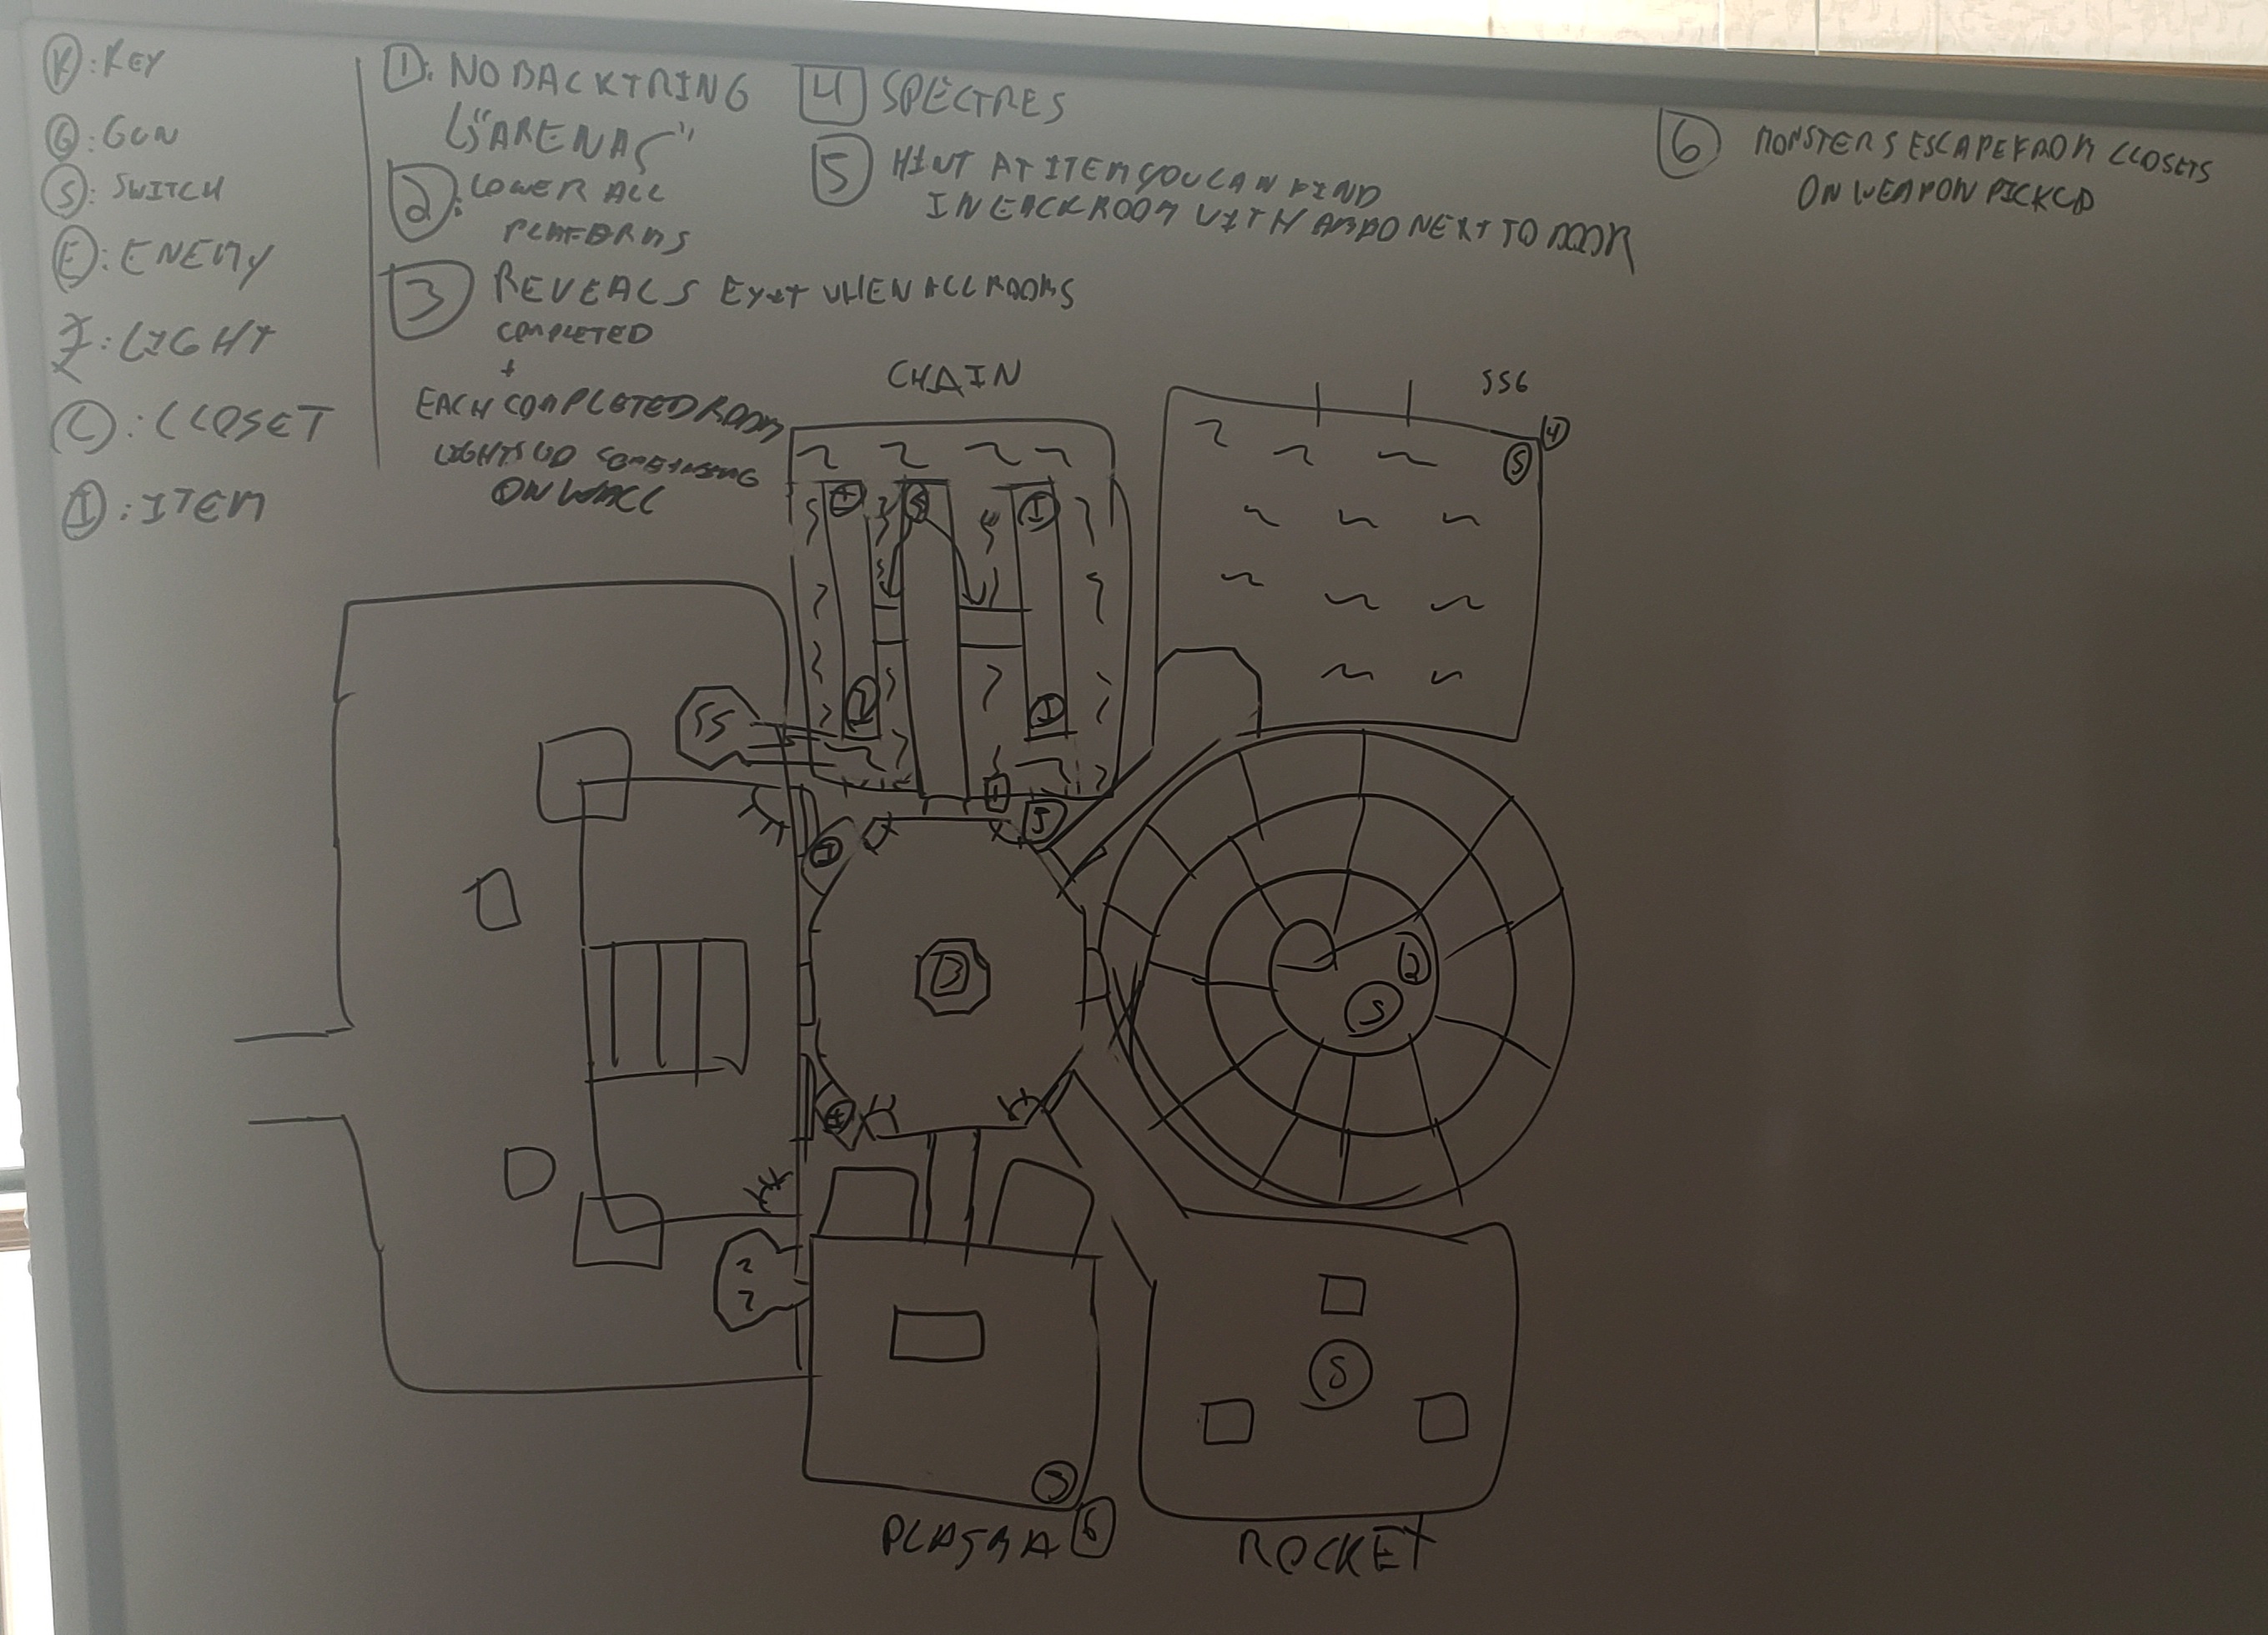 K: KEY
G: GUN
S: SWITCH
E: ENEMY
: LIGHT
C: CLOSET
I: ITEM
1: NO BACKTRING
↳ "ARENAS"
2: LOWER ALL
PLATFORMS
3 REVEALS EXIT WHEN ALL ROOMS
COMPLETED
+
EACH COMPLETED ROOM
LIGHTS UP SOMETHING
ON WALL
4 SPECTRES
5 HINT AT ITEM YOU CAN FIND
IN EACH ROOM WITH AMMO NEXT TO DOOR
6 MONSTERS ESCAPE FROM CLOSETS
ON WEAPON PICKUP
CHAIN
SSG
4
S
I S I
SS
I I
1
5
I
3
2
S
I
S
S
PLASMA 6
ROCKET